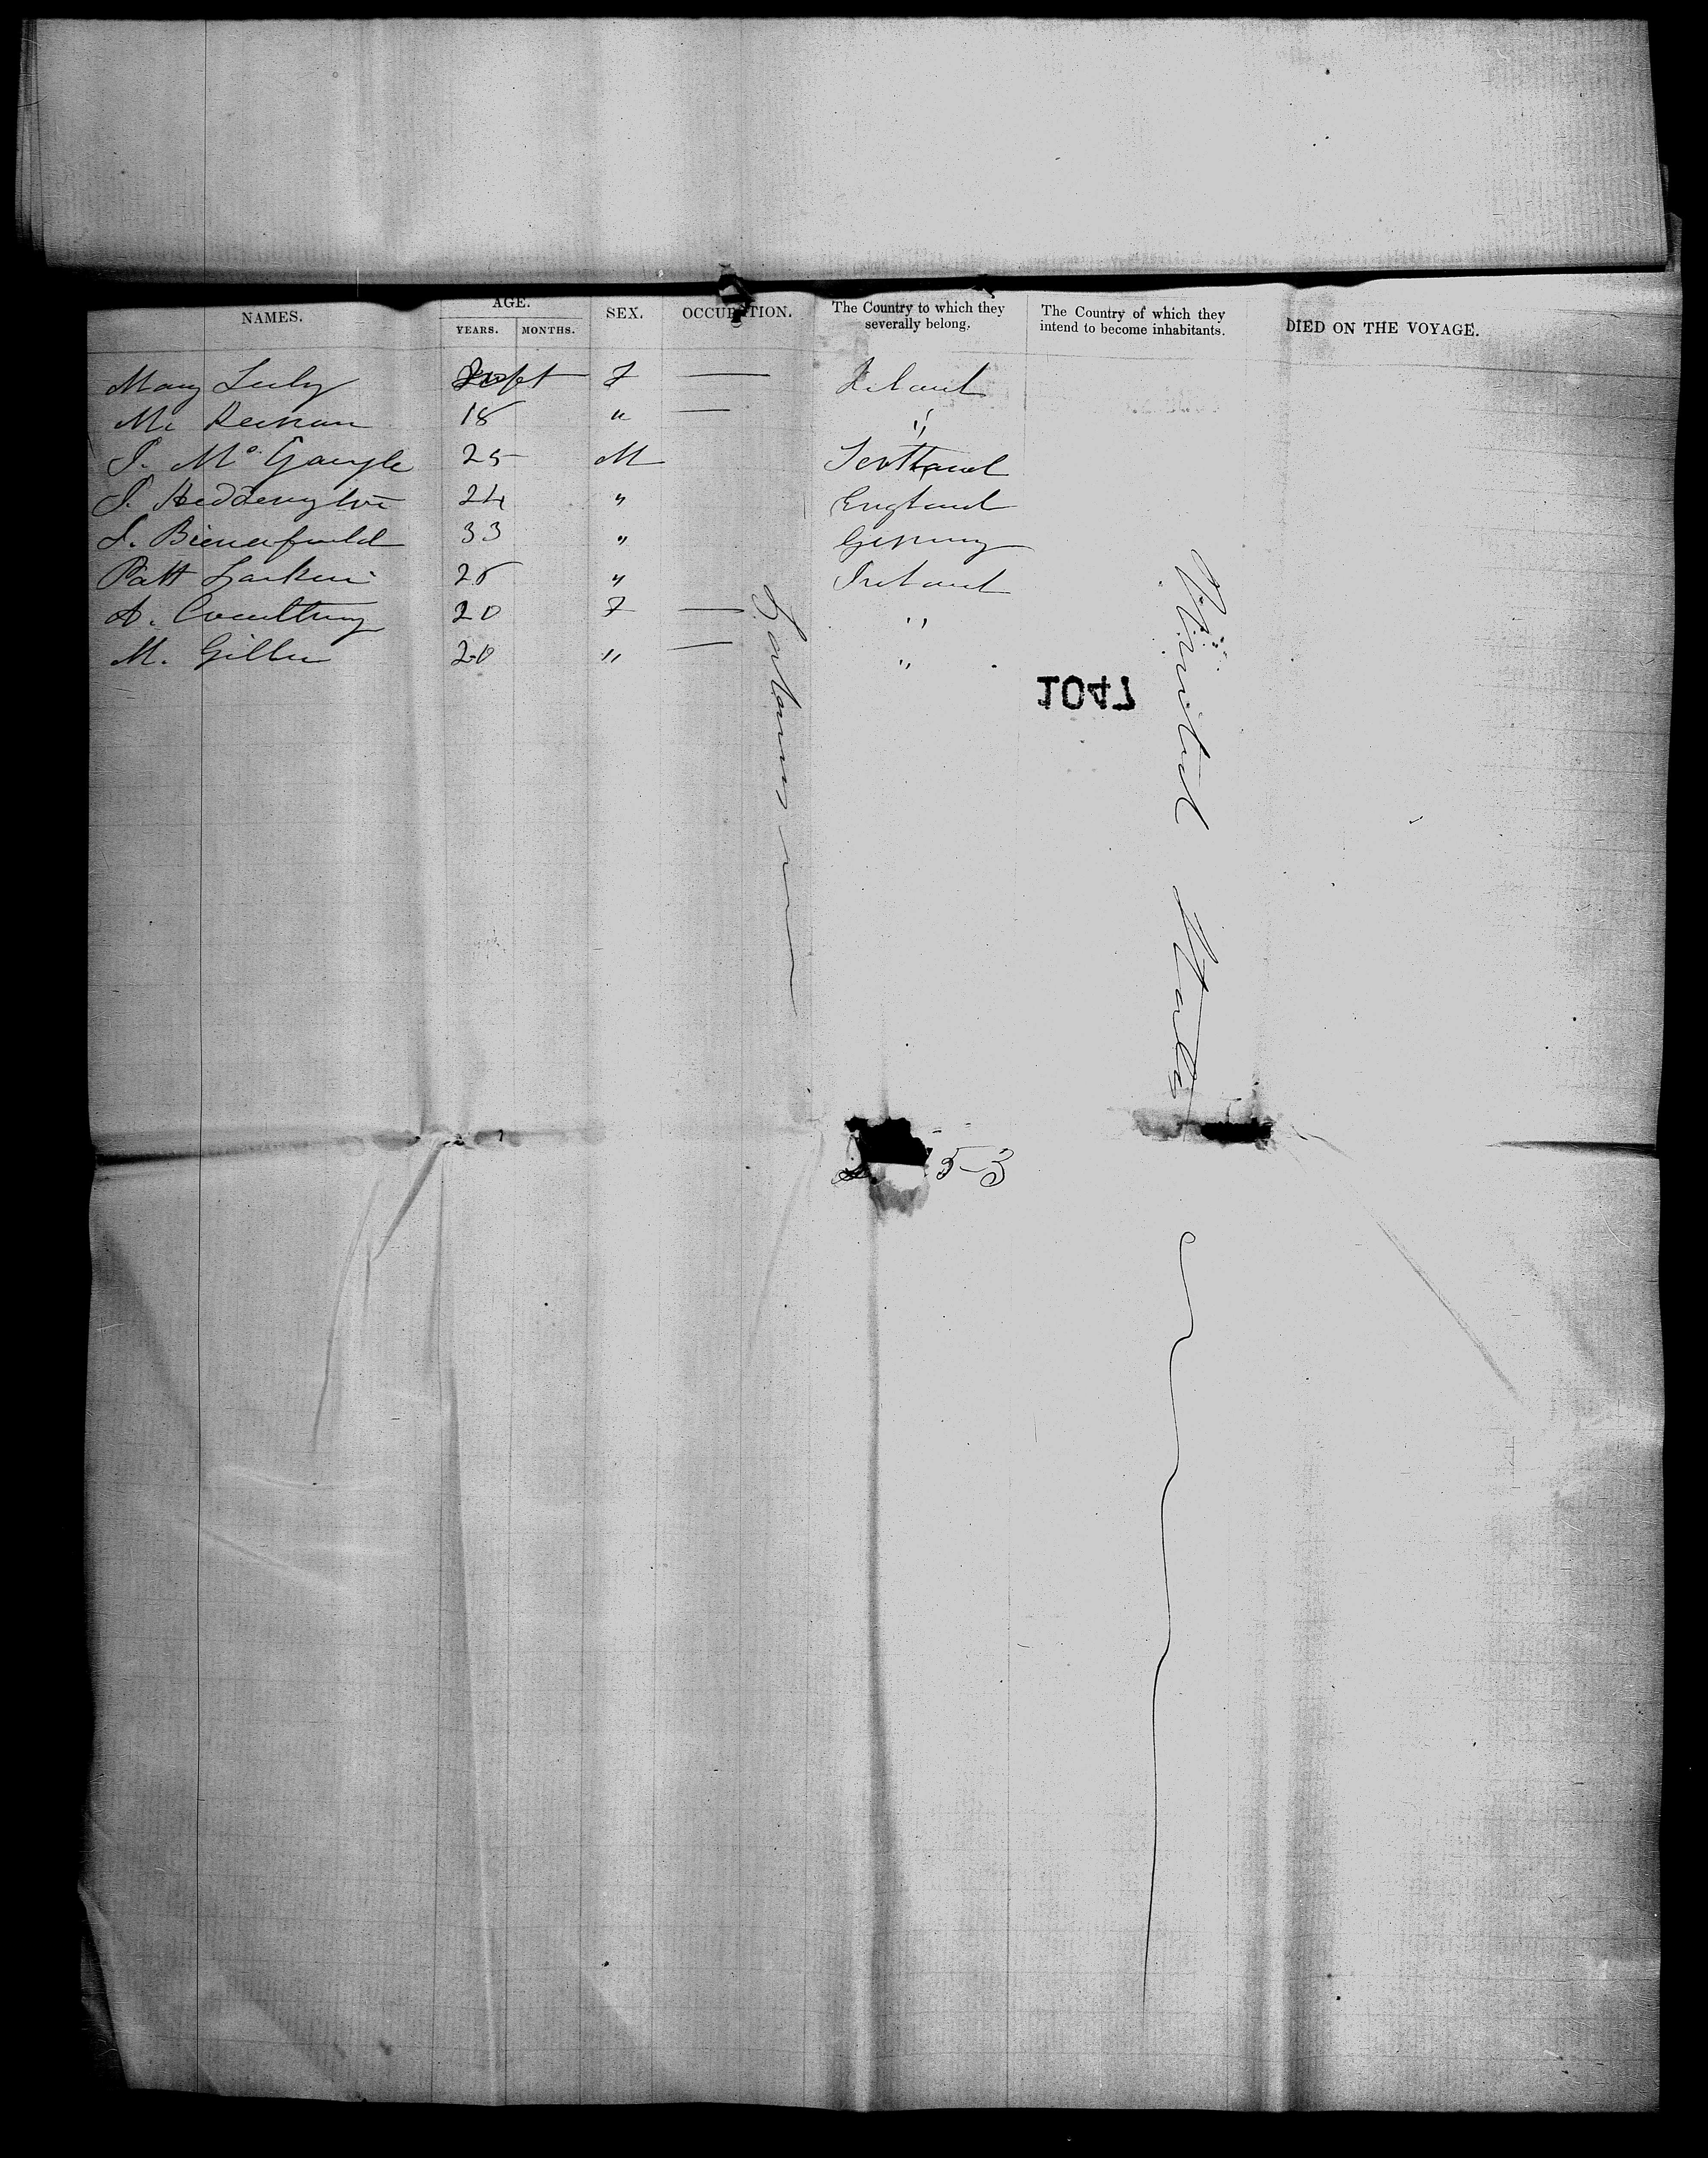 NAMES. AGE. SEX. OCCUPATION. The Country to which they severally belong. The Country of which they intend to become inhabitants. DIED ON THE VOYAGE.
YEARS. MONTHS.
Mary F — Ireland
Mc Keenan 18 " — "
J. Mc Gargle 25 M Scotland
J. Heddington 24 " England
J. Bienerfield 33 " Germany
Patt Larkin 25 " Ireland
A. 20 F — "
M. 20 " — "
Labourers
United States
1047
53